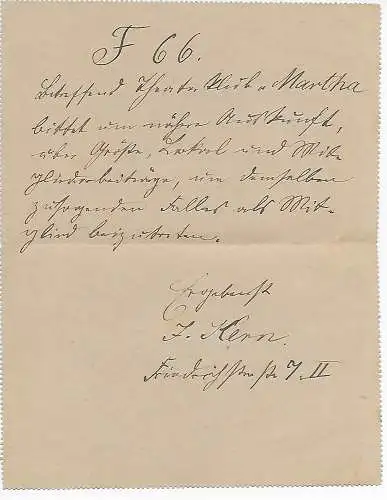 F 66.
Betreffend Theaterklub „Martha
bittet um nähere Auskunft,
über Größe, Lokal und Mit-
gliederbeiträge, um demselben
zusagenden Falles als Mit-
glied beizutreten.
Ergebenst
J. Kern.
Friedrichstraße 7. II